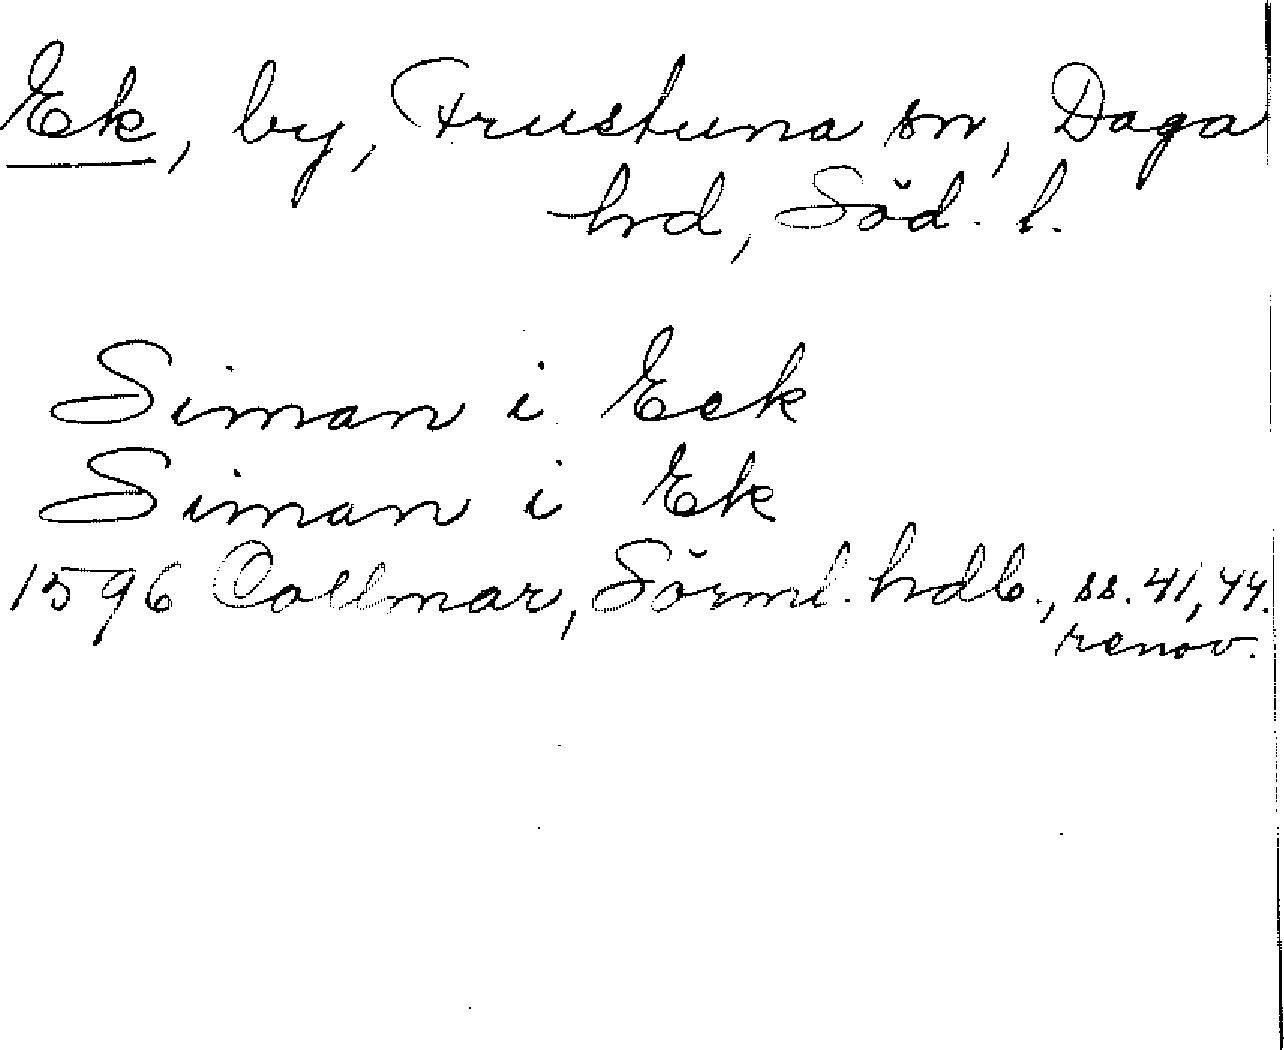 Ek, by, Frustuna sn, Daga
hrd, Söd. l.
Siman i Eek
Siman i Ek
1596 Collmar, Sörml. hrdb., ss. 41, 44.
renov.